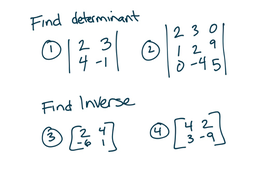 Find determinant
① | 2 3 | ② | 2 3 0 |
| 4 -1 | | 1 2 9 |
| 0 -4 5 |
Find Inverse
③ [ 2 4 ] ④ [ 4 2 ]
[ -6 1 ] [ 3 -9 ]